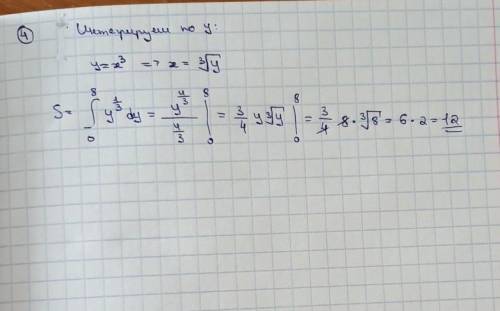 ④ Интегрируем по y:
y=x³ => x=∛y
S= ∫₀⁸ y^{1/3} dy = y^{4/3} / (4/3) |₀⁸ = 3/4 y∛y |₀⁸ = 3/4 8·∛8 = 6·2=12